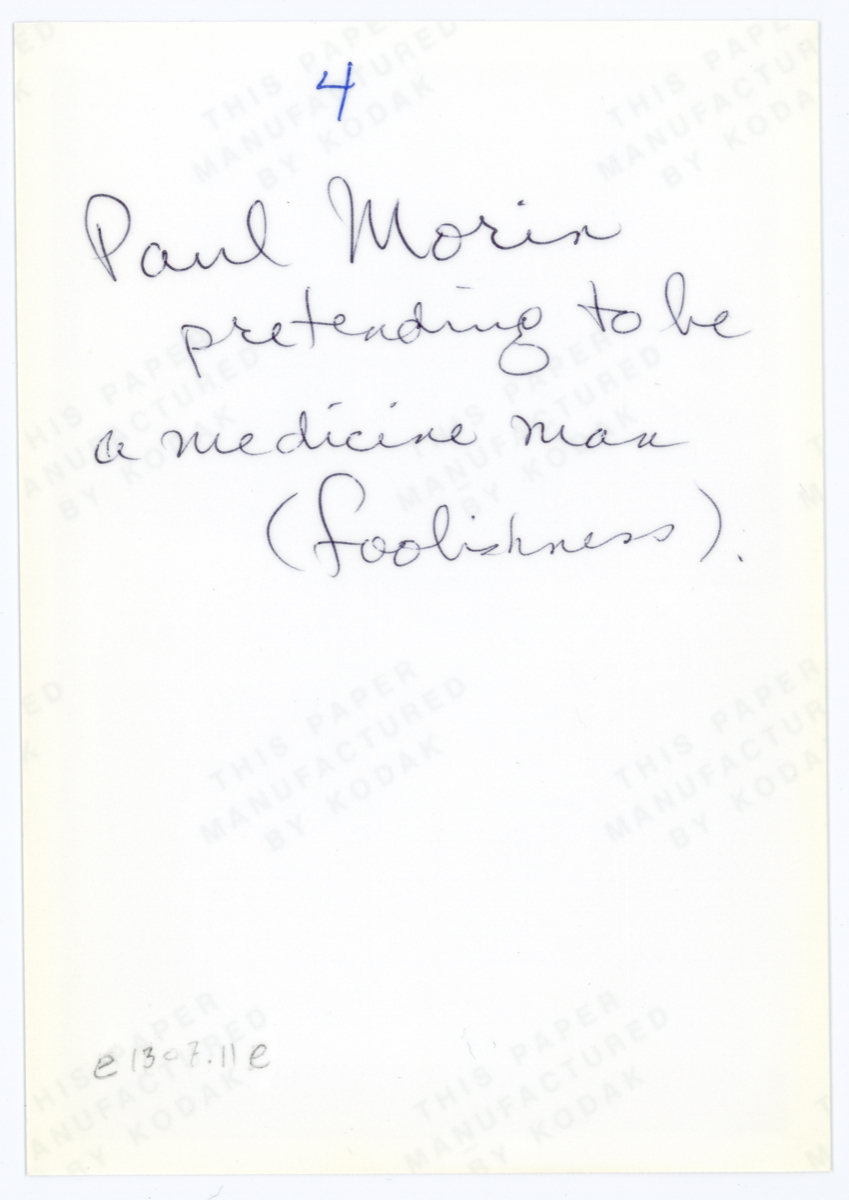 4
Paul Morin
pretending to be
a medicine man
(foolishness).
THIS PAPER
MANUFACTURED
BY KODAK
e1307.11e